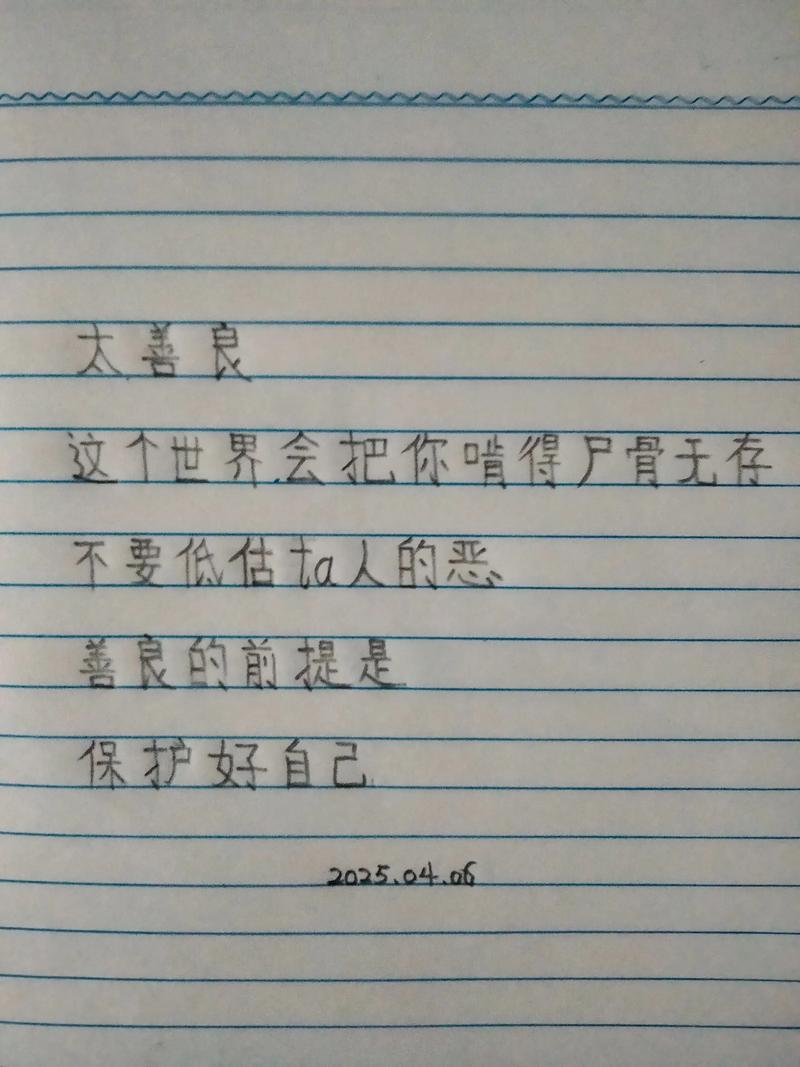 太善良
这个世界会把你啃得尸骨无存
不要低估ta人的恶
善良的前提是
保护好自己
2025.04.06